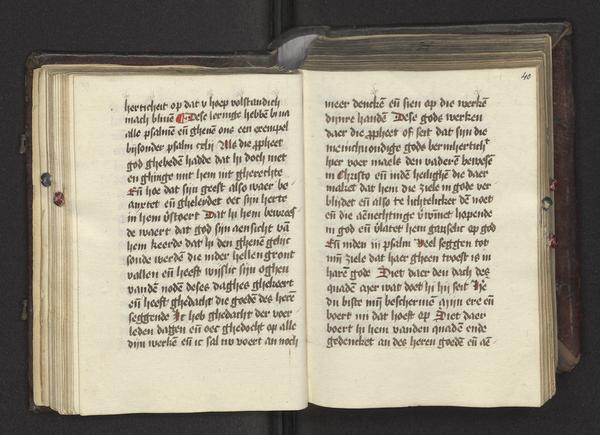 herticheit op dat v hoep volstandich
mach bliuē Dese leringe hebbē bina
alle psalmē eñ gheuē ons een exempel
bisonder psalm cxlij Als die ꝓpheet
god ghebedē hadde dat hi doch niet
en ghinge mit hem int gherechte
Eñ hoe dat sijn geest also waer be-
anxtet eñ gheleydet oec sijn herte
in hem v̄stoert Dat hi hem beuroes
de waert dat god sijn aensicht vā
hem keerde dat hi den ghenē gelijc
sonde werdē die nider hellen gront
vallen eñ heeft wijslic sijn oghen
vandē nodē deses daghes ghekeert
eñ heeft ghedacht die goedē des herē
seggende Ic heb ghedacht der voer
leden dagen eñ oec ghedocht op alle
dijn werkē eñ ic sal nv voert an noch
40
meer denckē eñ sien op die werkē
dijnre handē Dese gods werken
daer die ꝓpheet of seit dat sijn die
menichuondige gods bermhertich
hier voer maels den vaderē bewesē
in Christo eñ indē heilighē die daer
maket dat hem die ziele in gode ver
blijdet eñ also te lichtelicker dē noet
eñ die aēuechtinge v̄wīnet hopende
in god eñ v̄latet hem gansselic op god
Eñ inden iij psalm Veel seggen tot
mijn ziele dat haer gheen troest is in
harē gode Siet daer den dach des
quadē mer wat doet hi hij seit He
du biste mij beschermer mijn ere eñ
voert mi dat hoeft op Siet daer
voert hi hem vanden quadē ende
gedencket an des heren goedē eñ aē